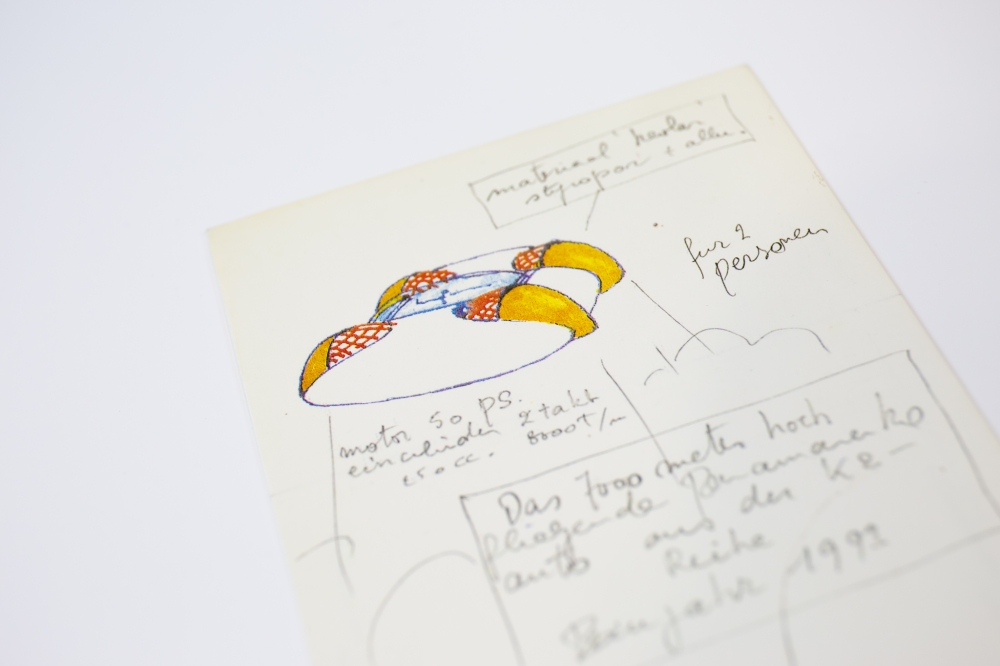 materiaal 'kevlar'
styropor + allu.
fur 2
personen
motor 50 ps.
eincilinder 2 takt
250 cc. 8000 t/m
Das 7000 meter hoch
fliegende Panamarenko
auto aus der K2-
Reihe
Bau jahr 1991